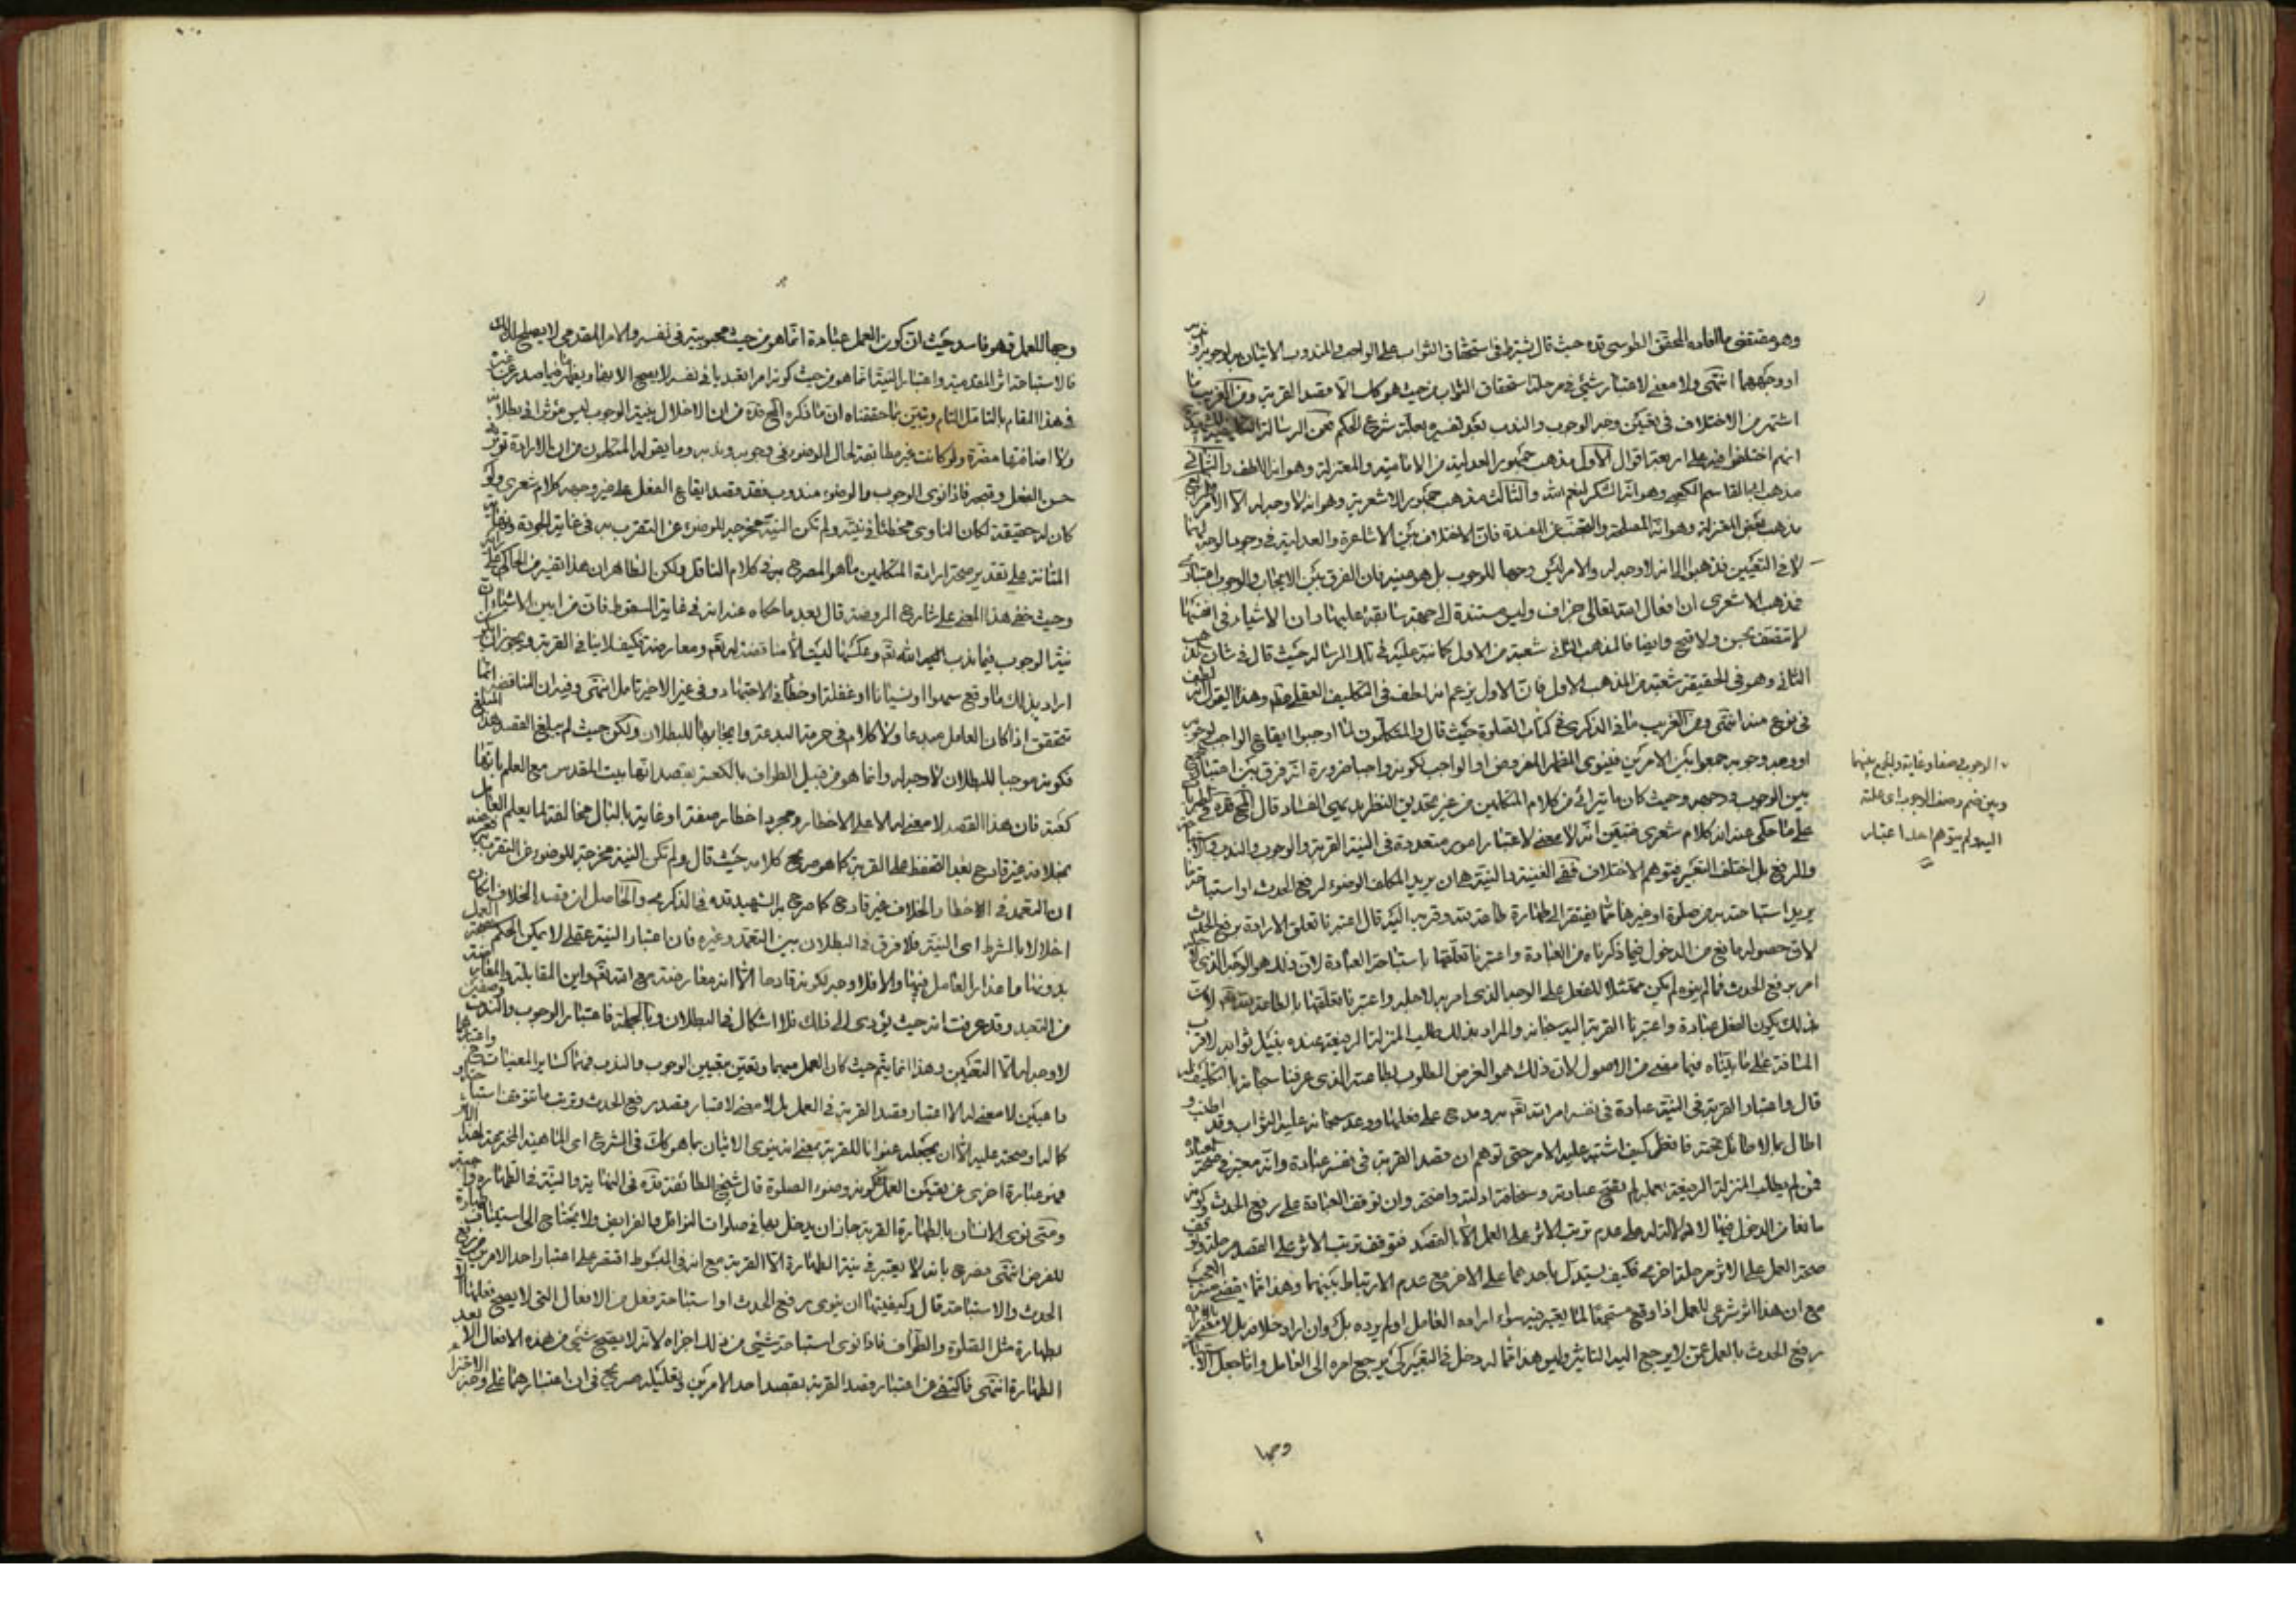 وهو مقتضى ما افاده المحقق الطوسي قده حيث قال يشترط في استحقاق الثواب على الواجب والمندوب الاتيان به لوجوبه
او وجههما انتهى ولا معنى لاعتبار شيء في مرحلة استحقاق الثواب من حيث هو كك الا قصد القربة ومن الغريب ما
اشتهر من الاختلاف في تعيين وجه الوجوب والندب بعد تفسيره بعلة شرع الحكم فعن الرسالة
انهم اختلفوا فيه على اربعة اقوال الاول مذهب جمهور العدلية من الامامية والمعتزلة وهو انه اللطف والثاني
مذهب ابي القاسم الكعبي وهو انه الشكر لنعم الله والثالث مذهب جمهور الاشعرية وهو انه لا وجه له الا الامر
مذهب بعض المعتزلة وهو انه المصلحة والتجنب عن المفسدة فان الاختلاف بين الاشاعرة والعدلية في وجود الوجه لهما
لا في التعيين فذهبوا الى انه لا وجه له والامر ليس وجها للوجوب بل هو عينه فان الفرق بين الايجاب والوجوب اعتباري
فمذهب الاشعري ان افعال الله تعالى جزاف وليس مستندة الى جهة سابقة عليها وان الاشياء في انفسها
لا تتصف بحسن ولا قبح وايضا فالمذهب الثاني شعبة من الاول كما نبه عليه في تلك الرسالة حيث قال في شان
الثاني وهو في الحقيقة شعبة من المذهب الاول فان الاول يزعم انه لطف في التكليف العقلي وهذا القول انه لطف
في نوع منه انتهى ومن الغريب ما في الذكرى في كتاب الصلوة حيث قال والمتكلمون لما اوجبوا ايقاع الواجب لوجوبه
او وجه وجوبه جمعوا بين الامرين فينوى الظهر المفروض او الواجب لكونه واجبا ضرورة انه فرق بين اعتباري
بين الوجوب ووجهه وحيث كان ما يترائى من كلام المتكلمين من غير تحديق النظر بديهي الفساد قال
على ما حكى عنه انه كلام شعري فتبين انه لا معنى لاعتبار امور متعددة في النية القربة والوجوب والندب
والرفع بل اختلف التعبير فتوهم الاختلاف ففي الغنية والنية هي ان يريد المكلف الوضوء لرفع الحدث او استباحة ما
يريد استباحته به من صلوة او غيرها مما يفتقر الى طهارة طاعة لله وقربة اليه قال اعتبرنا تعلق الارادة برفع الحدث
لان حصوله مانع من الدخول فيما ذكرناه من العبادة واعتبرنا تعلقها باستباحة العبادة لان ذلك هو الوجه الذي
امر برفع الحدث فما لم ينوه لم يكن ممتثلا للفعل على الوجه الذي امر به لاجله واعتبرنا تعلقها بالطاعة لله تعالى لان
بذلك يكون الفعل عبادة واعتبرنا القربة اليه سبحانه والمراد بذلك طلب المنزلة الرفيعة عنده بنيل ثوابه
المسافة على ما بيناه فيما مضى من الاصول لان ذلك هو الغرض المطلوب بطاعته الذي عرفنا سبحانه بالتكليف له
قال واعتبار القربة في النية عبادة في نفسه امر الله تعالى به ومدح على فعلها ووعد سبحانه عليه الثواب وقد اطنب و
اطال بما لا طائل تحته فانظر كيف اشتبه عليه الامر حتى توهم ان قصد القربة في نفسه عبادة وانه معتبر في صحة العبادة
فمن لم يطلب المنزلة الرفيعة بعمله لم يقع عبادته وسخافة ادلته واضحة وان توقف العبادة على رفع الحدث وكونه
مانعا من الدخول فيها لا دلالة له على عدم ترتب الاثر على العمل الا بالقصد فتوقف ترتب الاثر على القصد مرحلة وتوقف
صحة العمل على الاثر مرحلة اخرى فكيف يستدل باحدهما على الاخر مع عدم الارتباط بينهما وهذا مما يقضى منه العجب
مع ان هذا اثر شرعي للعمل اذا وقع مستجمعا لما يعتبر فيه سواء اراده العامل او لم يرده بل وان اراد خلافه بل لا معنى لارادة
رفع الحدث بالعمل ممن لا يرجع اليه التاثير وليس هذا مما له دخل في التعبير كي يرجع امره الى العامل واما جعل
وجها
الوجوب صفة وغاية والجمع بينهما
وبين ضم وصف الوجوب اي علته
اليه ولم يتوهم احد اعتبار
وجها للعمل فهو فاسد حيث ان كون العمل عبادة انما هو من حيث محبوبيته في نفسه والامر المقدمي لا يصلح لذلك
فالاستباحة اثر المقدمية واعتبار النية انما هو من حيث كونه امرا تعبديا في نفسه لا يصح الا بها
في هذا المقام بالتامل التام وتبين بما حققناه ان ما ذكره المحقق قده من ان الاخلال بنية الوجوب ليس مؤثرا في بطلانه
ولا اضافتها مضرة ولو كانت غير مطابقة لحال الوضوء في وجوبه وندبه وما يقوله المتكلمون من ان الارادة تؤثر في
حسن الفعل وقبحه فاذا نوى الوجوب والوضوء مندوب فقد قصد ايقاع الفعل على غير وجهه كلام شعري ولو
كان له حقيقة لكان الناوي مخطئا في نيته ولم تكن النية مخرجة للوضوء عن التقرب به في غاية الجودة ونهاية
المتانة على تقدير صحة ارادة المتكلمين ما هو المصرح به في كلام الناقل ولكن الظاهر ان هذا تفسير من الحاكي
وحيث خفى هذا المعنى على شارح الروضة قال بعد ما حكاه عنه انه في غاية السقوط فان من ابين الاشياء ان
نية الوجوب فيما ندب اليه الله تعالى وعكسها ليست الا مناقضة له تعالى ومعارضة فكيف لا ينافي القربة ويجوز ان يكون
اراد بذلك ما وقع سهوا او نسيانا او غفلة او خطأ في الاجتهاد وفي غير الاخير تامل انتهى وفيه ان المناقضة انما
تتحقق اذا كان العامل مبدعا ولا كلام في حرمة البدعة وايجابها للبطلان ولكن حيث لم يبلغ القصد هذا المبلغ
فكونه موجبا للبطلان لا وجه له وانما هو من قبيل الطواف بالكعبة بقصد انها بيت المقدس مع العلم بانها
كعبة فان هذا القصد لا معنى له الا على الاخطار ومجرد اخطار صفة او غاية بالبال مخالفة لما يعلم العامل
بخلافه غير قادح بعد التحفظ على القربة كما هو صريح كلامه حيث قال ولم تكن النية مخرجة للوضوء عن التقرب به
ان التعمد في الاخطار والخلاف غير قادح كما صرح به الشهيد قده في الذكرى والحاصل ان قصد الخلاف ان كان
اخلالا بالشرط اي النية فلا فرق في البطلان بين التعمد وغيره فان اعتبار النية عقلي لا يمكن الحكم بصحة العمل
بدونها وما عذار العامل فيها والا فلا وجه لكونه قادحا الا انه معارضة مع الله تعالى واين المقابلة والمعارضة
من التعبد وقد عرفت انه حيث يؤدى الى ذلك فلا اشكال في البطلان وبالجملة فاعتبار الوجوب والندب وصفين
لا وجه له الا التعيين وهذا انما يتم حيث كان العمل مبهما وتعين بتعيين الوجوب والندب فهما كسائر المعينات
وغايتين لا معنى له الا اعتبار قصد القربة في العمل بل لا معنى لاعتبار قصد رفع الحدث وترتب ما تتوقف
كماله او صحته عليه الا ان يجعله عنوانا للقربة بمعنى انه ينوي الاتيان بما هو كك في الشرع اى الماهية المخترعة لهذا الاثر
فهو عبارة اخرى عن تعيين العمل ككونه وضوء الصلوة قال شيخ الطائفة قده في النهاية والنية في الطهارة واجبة
ومتى نوى الانسان بالطهارة القربة جاز ان يدخل بها في صلوات النوافل والفرايض ولا يحتاج الى استيناف طهارة
للفرض انتهى فصرح بانه لا يعتبر في نية الطهارة الا القربة مع انه في المبسوط اقتصر على اعتبار احد الامرين من رفع
الحدث والاستباحة قال وكيفيتها ان ينوى رفع الحدث او استباحة فعل من الافعال التي لا يصح فعلها الا
بطهارة مثل الصلوة والطواف فاذا نوى استباحة شيء من ذلك اجزاه لانه لا يصح شيء من هذه الافعال الا بعد
الطهارة انتهى فاكتفى عن اعتبار قصد القربة بقصد احد الامرين وتعليله صريح في ان اعتبارهما على وجه